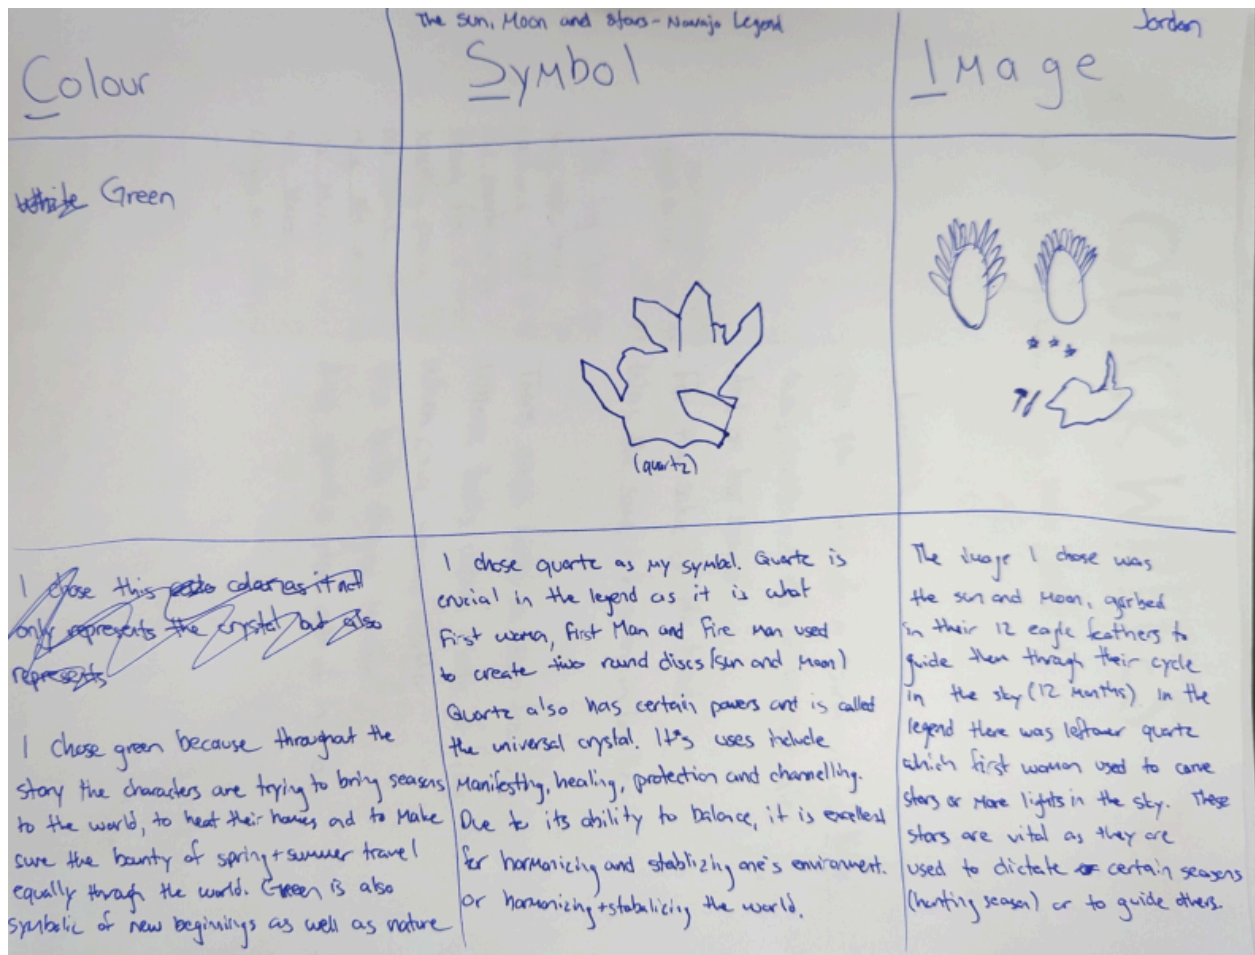 The Sun, Moon and Stars - Navajo Legend
Jordan
Colour
Symbol
Image
White Green
(quartz)
I chose this colour as it not
only represents the crystal but also
represents
I chose green because throughout the
story the characters are trying to bring seasons
to the world, to heat their homes and to make
sure the bounty of spring + summer travel
equally through the world. Green is also
symbolic of new beginnings as well as nature
I chose quartz as my symbol. Quartz is
crucial in the legend as it is what
First woman, First Man and Fire man used
to create two round discs (sun and moon)
Quartz also has certain powers and is called
the universal crystal. It's uses include
manifesting, healing, protection and channelling.
Due to its ability to balance, it is excellent
for harmonizing and stablizing one's environment.
or harmonizing + stabalizing the world.
The image I chose was
the sun and moon, garbed
in their 12 eagle feathers to
guide them through their cycle
in the sky (12 months) In the
legend there was leftover quartz
which first woman used to carve
stars or more lights in the sky. These
stars are vital as they are
used to dictate certain seasons
(hunting season) or to guide others.